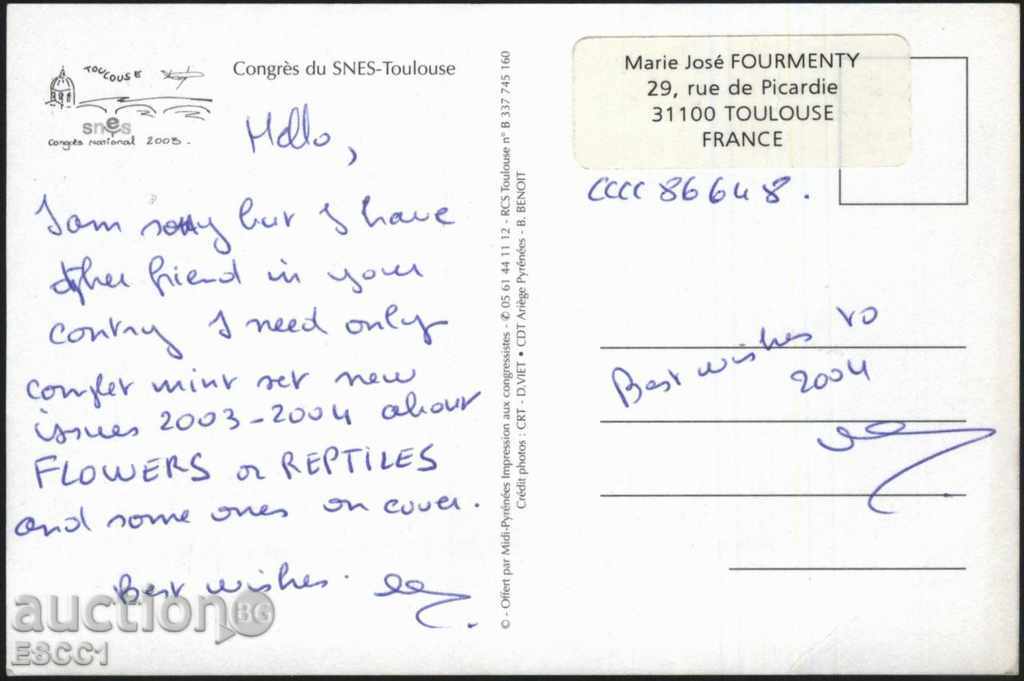 TOULOUSE
snes
Congrès national 2003.
Congrès du SNES-Toulouse
Hello,
I am sorry but I have
other friend in your
contry I need only
complet mint set new
issues 2003-2004 about
FLOWERS or REPTILES
and some ones on cover.
Best wishes.
© - Offert par Midi-Pyrénées Impression aux congressistes - ✆ 05 61 44 11 12 - RCS Toulouse n° B 337 745 160
Crédit photos : CRT - D.VIET • CDT Ariège Pyrénées - B. BENOIT
Marie José FOURMENTY
29, rue de Picardie
31100 TOULOUSE
FRANCE
CCCC 86648.
Best wishes to
2004
auction BG
ESCC1